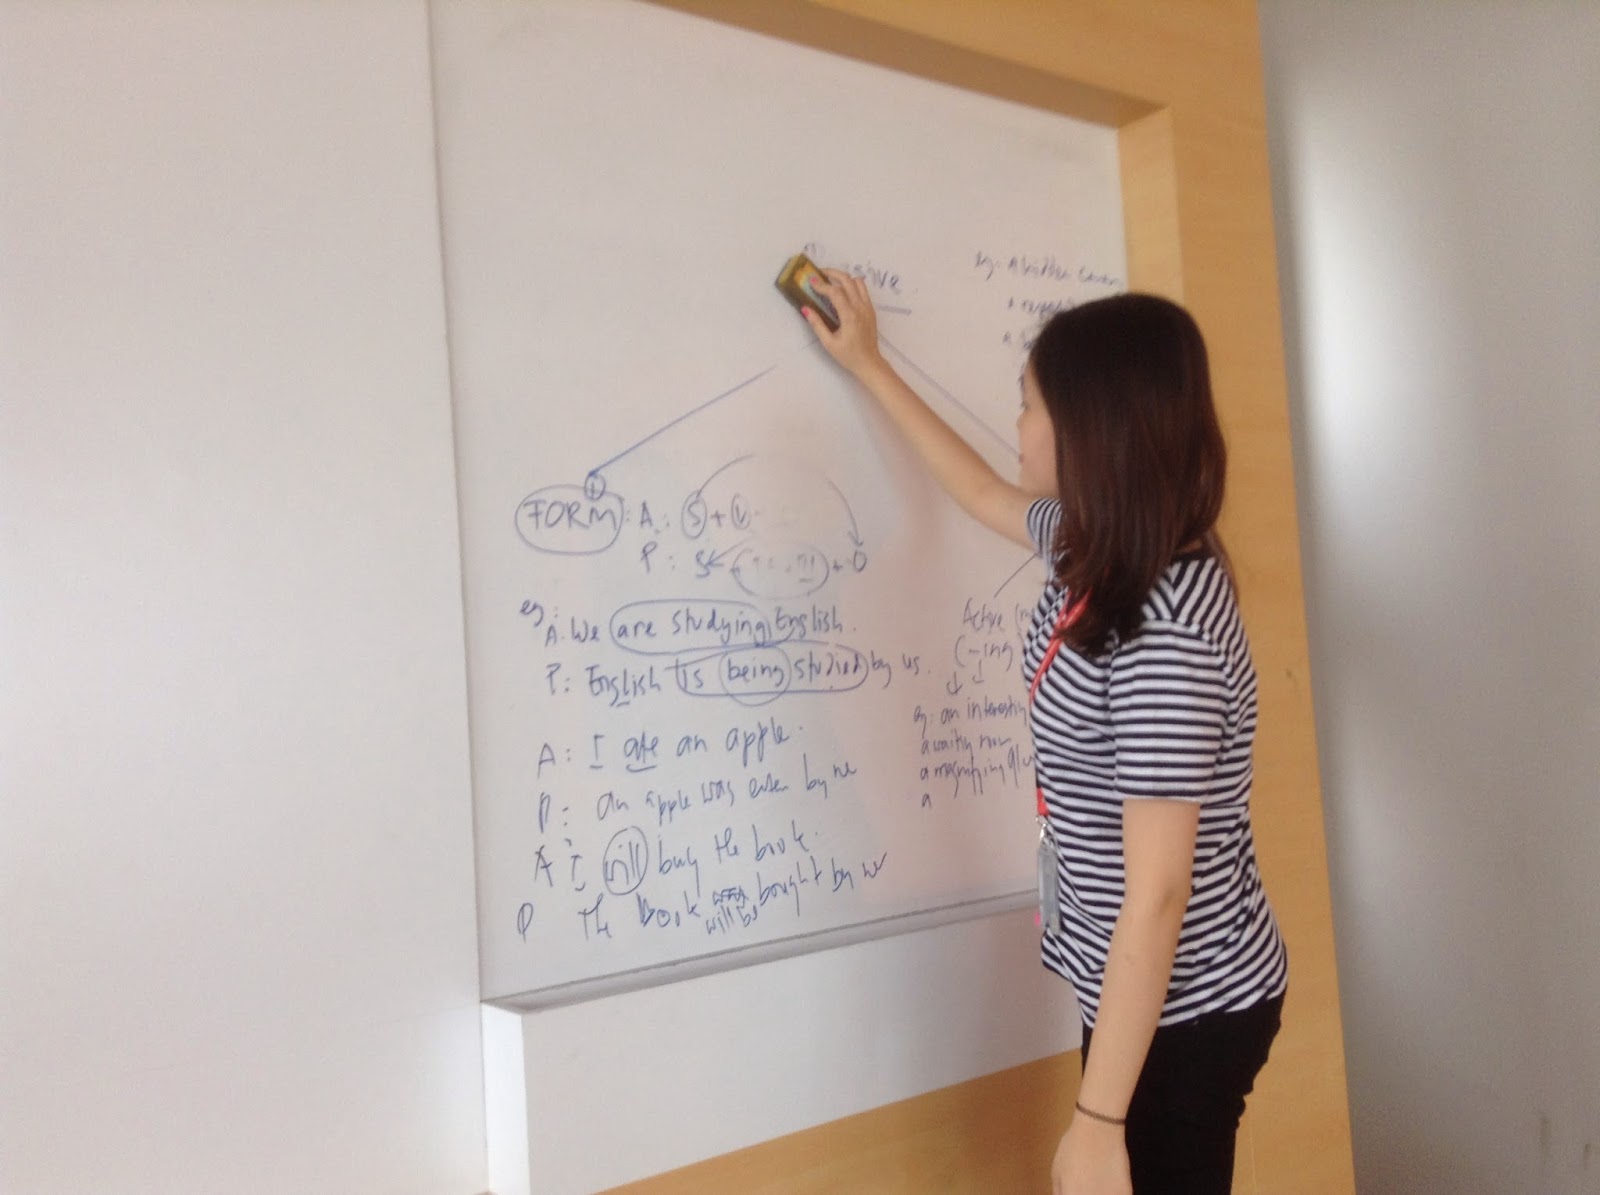 eg: A hidden
FORM: A: S + V
P: S + O
eg:
A. We are studying English.
P: English is being studied by us.
A: I ate an apple.
P: an apple was eaten by me
A I will buy the book.
P The Book bought by me
will be
Active
(-ing
eg: an interesting
a waiting room
a magnifying
a